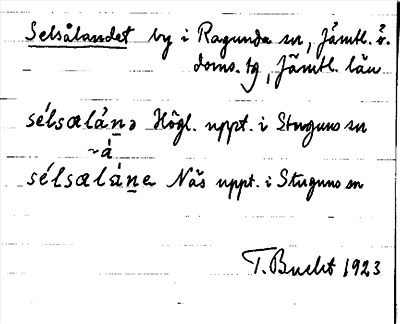 Selsålandet by i Ragunda sn, Jämtl. ö.
doms. tg, Jämtl. län
sélsalànə Högl. uppt. i Stuguns sn
~á
sélsaláne Näs uppt. i Stuguns sn
T. Bucht 1923